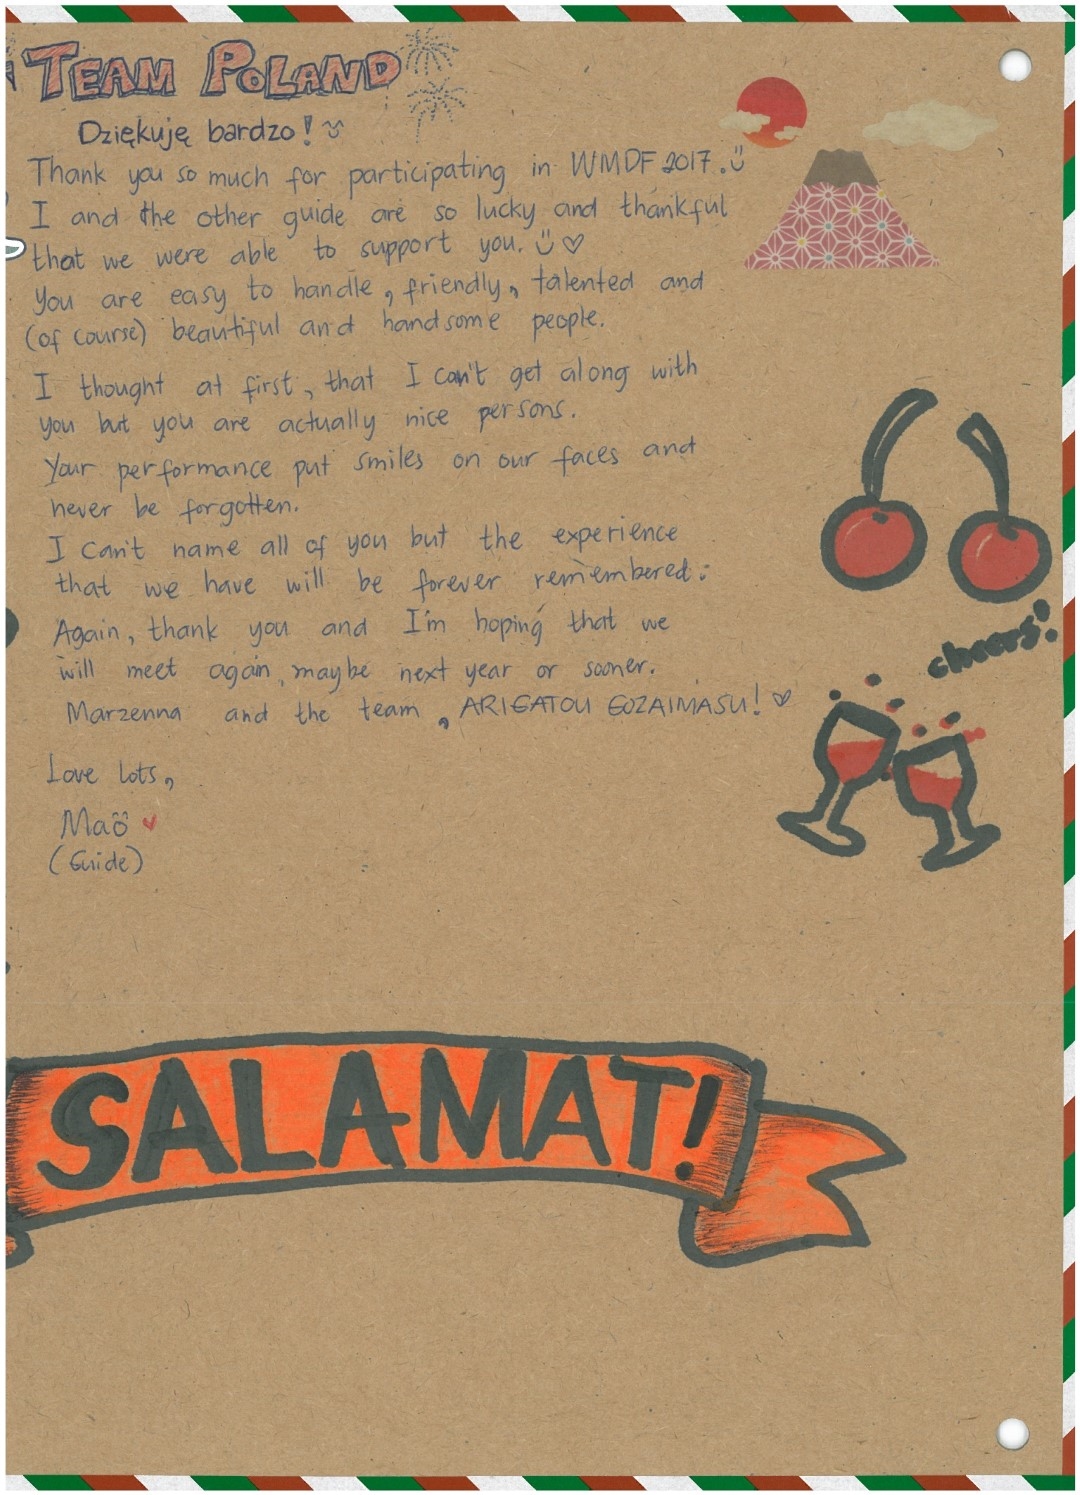 TEAM POLAND
Dziękuję bardzo!
Thank you so much for participating in WMDF 2017.
I and the other guide are so lucky and thankful
that we were able to support you.
You are easy to handle, friendly, talented and
(of course) beautiful and handsome people.
I thought at first, that I can't get along with
you but you are actually nice persons.
Your performance put smiles on our faces and
never be forgotten.
I can't name all of you but the experience
that we have will be forever remembered.
Again, thank you and I'm hoping that we
will meet again, maybe next year or sooner.
Marzenna and the team, ARIGATOU GOZAIMASU!
Love lots,
Maö
(Guide)
cheers!
SALAMAT!